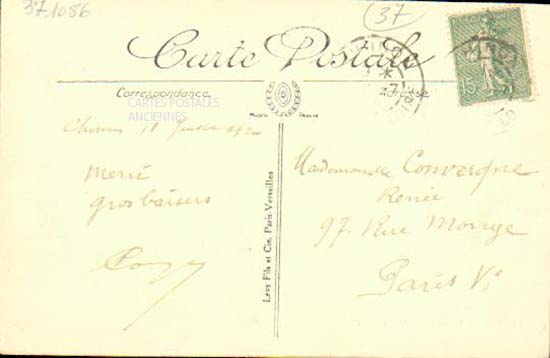 37,1086
37
Carte Postale
Correspondance
Adresse
CARTES POSTALES
ANCIENNES
Modèle Déposé
15
Chinon 11 192
Merci
gros baisers
Levy Fils et Cie, Paris-Versailles
Mademoiselle Convergne
Renée
97 Rue Monge
Paris Ve